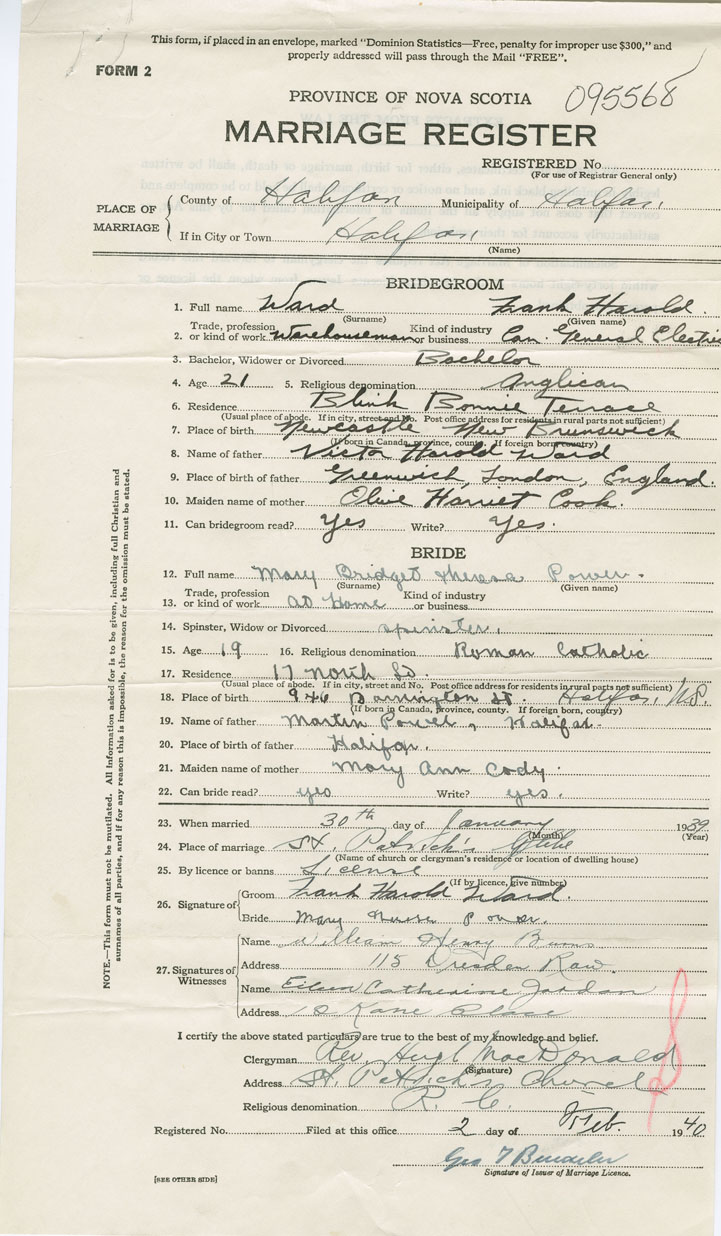 This form, if placed in an envelope, marked "Dominion Statistics—Free, penalty for improper use $300," and
properly addressed will pass through the Mail "FREE".
FORM 2
PROVINCE OF NOVA SCOTIA 095568
MARRIAGE REGISTER
REGISTERED No.
(For use of Registrar General only)
PLACE OF MARRIAGE
County of Halifax Municipality of Halifax
If in City or Town Halifax
(Name)
BRIDEGROOM
1. Full name Ward Frank Harold.
(Surname) (Given name)
2. Trade, profession or kind of work Warehouseman Kind of industry or business Can. General Electric
3. Bachelor, Widower or Divorced Bachelor
4. Age 21 5. Religious denomination Anglican
6. Residence Blink Bonnie Terrace
(Usual place of abode. If in city, street and No. Post office address for residents in rural parts not sufficient)
7. Place of birth Newcastle New Brunswick
(If born in Canada, province, county. If foreign born, country)
8. Name of father Victor Harold Ward
9. Place of birth of father Greenwich, London, England.
10. Maiden name of mother Olive Harriet Cook.
11. Can bridegroom read? Yes Write? Yes.
BRIDE
12. Full name Mary Bridget Theresa Power.
(Surname) (Given name)
13. Trade, profession or kind of work at Home Kind of industry or business
14. Spinster, Widow or Divorced spinster.
15. Age 19 16. Religious denomination Roman Catholic
17. Residence 17 North St.
(Usual place of abode. If in city, street and No. Post office address for residents in rural parts not sufficient)
18. Place of birth 946 Barrington St. Halifax, N.S.
(If born in Canada, province, county. If foreign born, country)
19. Name of father Martin Power, Halifax.
20. Place of birth of father Halifax.
21. Maiden name of mother Mary Ann Cody.
22. Can bride read? yes Write? yes.
23. When married 30th day of January 1939
(Month) (Year)
24. Place of marriage St. Patrick's Glebe
(Name of church or clergyman's residence or location of dwelling house)
25. By licence or banns License
(If by licence, give number)
26. Signature of Groom Frank Harold Ward.
Bride Mary Power.
27. Signatures of Witnesses
Name William Henry Burns
Address 115 Dresden Row.
Name Eileen Catherine Jordan
Address Kane Place
I certify the above stated particulars are true to the best of my knowledge and belief.
Clergyman Rev. Hugh MacDonald
(Signature)
Address St. Patrick's Church
Religious denomination R. C.
Registered No. Filed at this office 2 day of Feb. 1940
Geo
Signature of Issuer of Marriage Licence.
[SEE OTHER SIDE]
NOTE.—This form must not be mutilated. All Information asked for is to be given, including full Christian and
surnames of all parties, and if for any reason this is impossible, the reason for the omission must be stated.